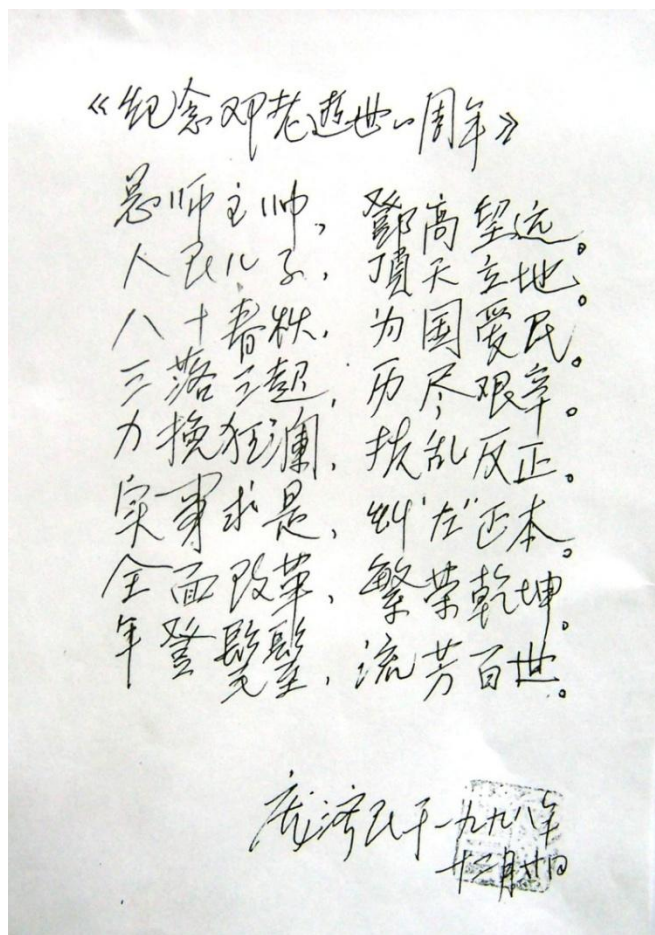 《纪念邓老逝世一周年》
恩师主帅，鄧高望远。
人民儿子，頂天立地。
八十春秋，为国爱民。
三落三起，历尽艰辛。
力挽狂澜，拨乱反正。
实事求是，纠“左”正本。
全面改革，繁荣乾坤。
年登，流芳百世。
庞济民于一九九八年
十二月廿日